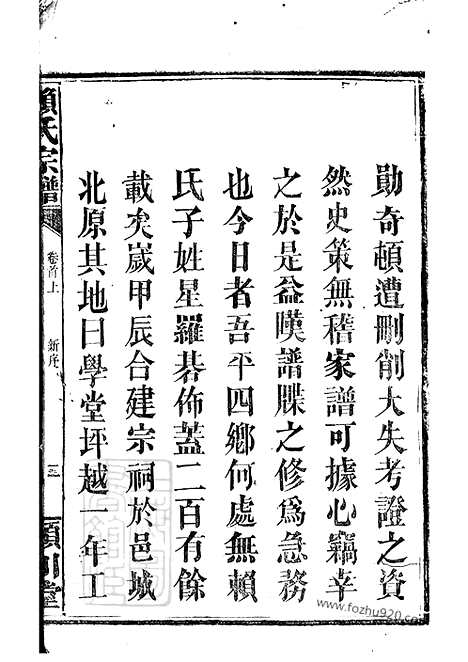 勛奇頓遭刪削大失考證之資
然史策無稽家譜可據心竊幸
之於是益嘆譜牒之修爲急務
也今日者吾平四鄉何處無賴
氏子姓星羅碁佈蓋二百有餘
載矣歲甲辰合建宗祠於邑城
北原其地曰學堂坪越一年工
賴氏宗譜
卷首上
新序
三
潁川堂
www.fozhu920.com